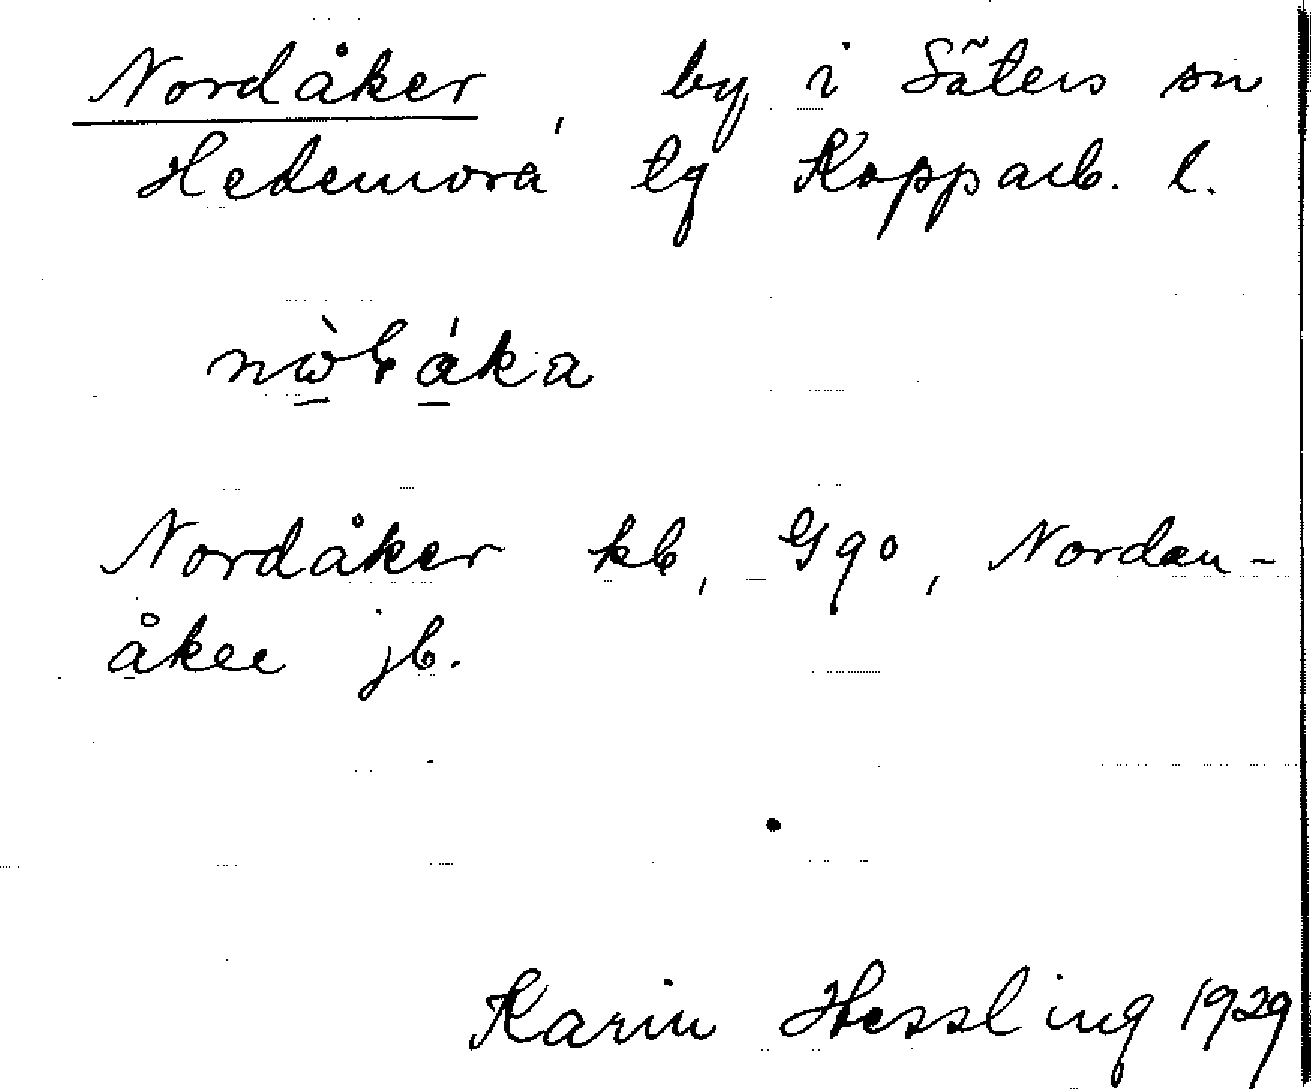 Nordåker, by i Säters sn
Hedemora tg Kopparb. l.
Nordåker kb, Ggo, Nordan-
åker jb.
Karin Hessling 1929